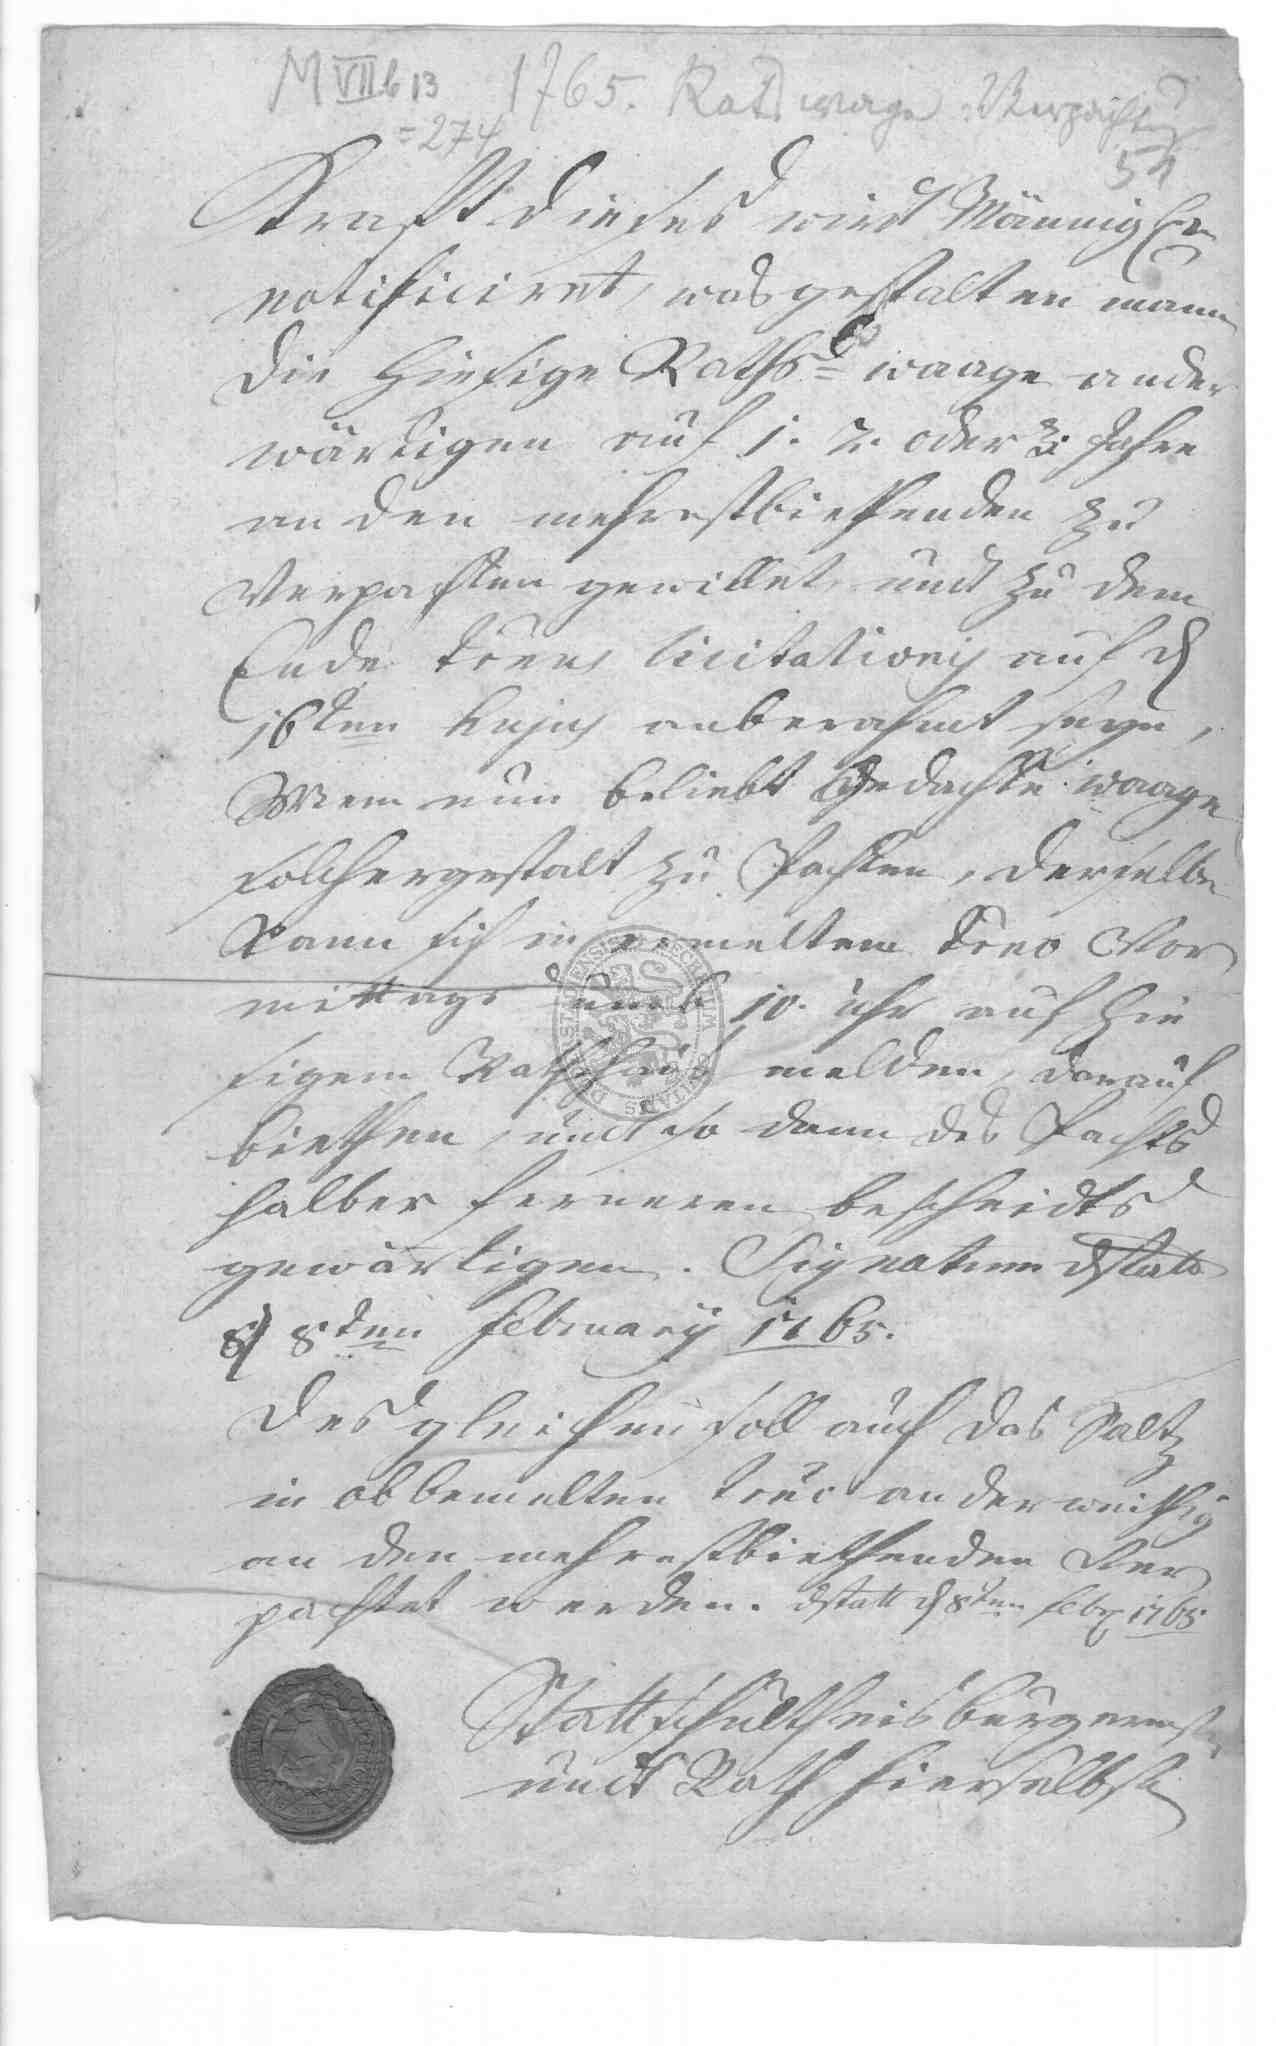 M VII b 13 1765. Rats wage Verpachtung
=274
51
Krafft dieses wird Männiglich
notificiret, wasgestalten mann
die hiesige Raths= waage ander
wärtigen auf 1. 2. oder 3. Jahre
an den mehrestbiethenden zu
Verpachten gewillet, undt zu dem
Ende licitationis auf d
16ten hujus anberahmt seye,
Wem nun beliebt Gedachte waage
solchergestalt zu Pachten, derselbe
Kann sich in ermeltem Vor
mittags umb 10. uhr auf hie
sigem Rathhaus melden, darauf
biethen, undt so dann des Pachts
halber ferneren bescheidts
gewärtigen. Signatum dstatt
d 8ten february 1765.
Desgleichen soll auch das Saltz
in obbemelten anderweithig
an den mehrestbiethenden Ver
pachtet werden. dstatt d 8ten febr 1765
Stattschultheis burgermstr
undt Rath hierselbst